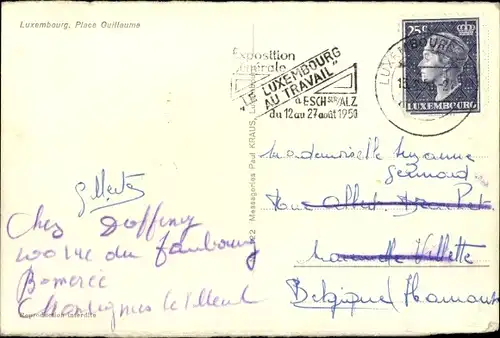 Luxembourg, Place Guillaume
Exposition
générale
"LE LUXEMBOURG
AU TRAVAIL"
à ESCH SUR/ALZ
du 12 au 27 août 1950
LUXEMBOURG
25c
LUXEMBOURG
Messageries Paul KRAUS,
Mademoiselle Suzanne
Germand
Rue Albert
Marcinelle Villette
Belgique (Hainaut
Chez
100 rue du faubourg
Bomerée
Montignies le Tilleul
Reproduction interdite